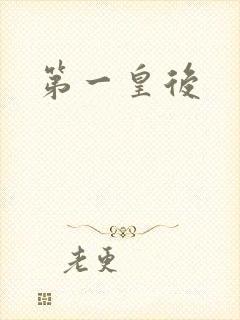 第一皇後
老更